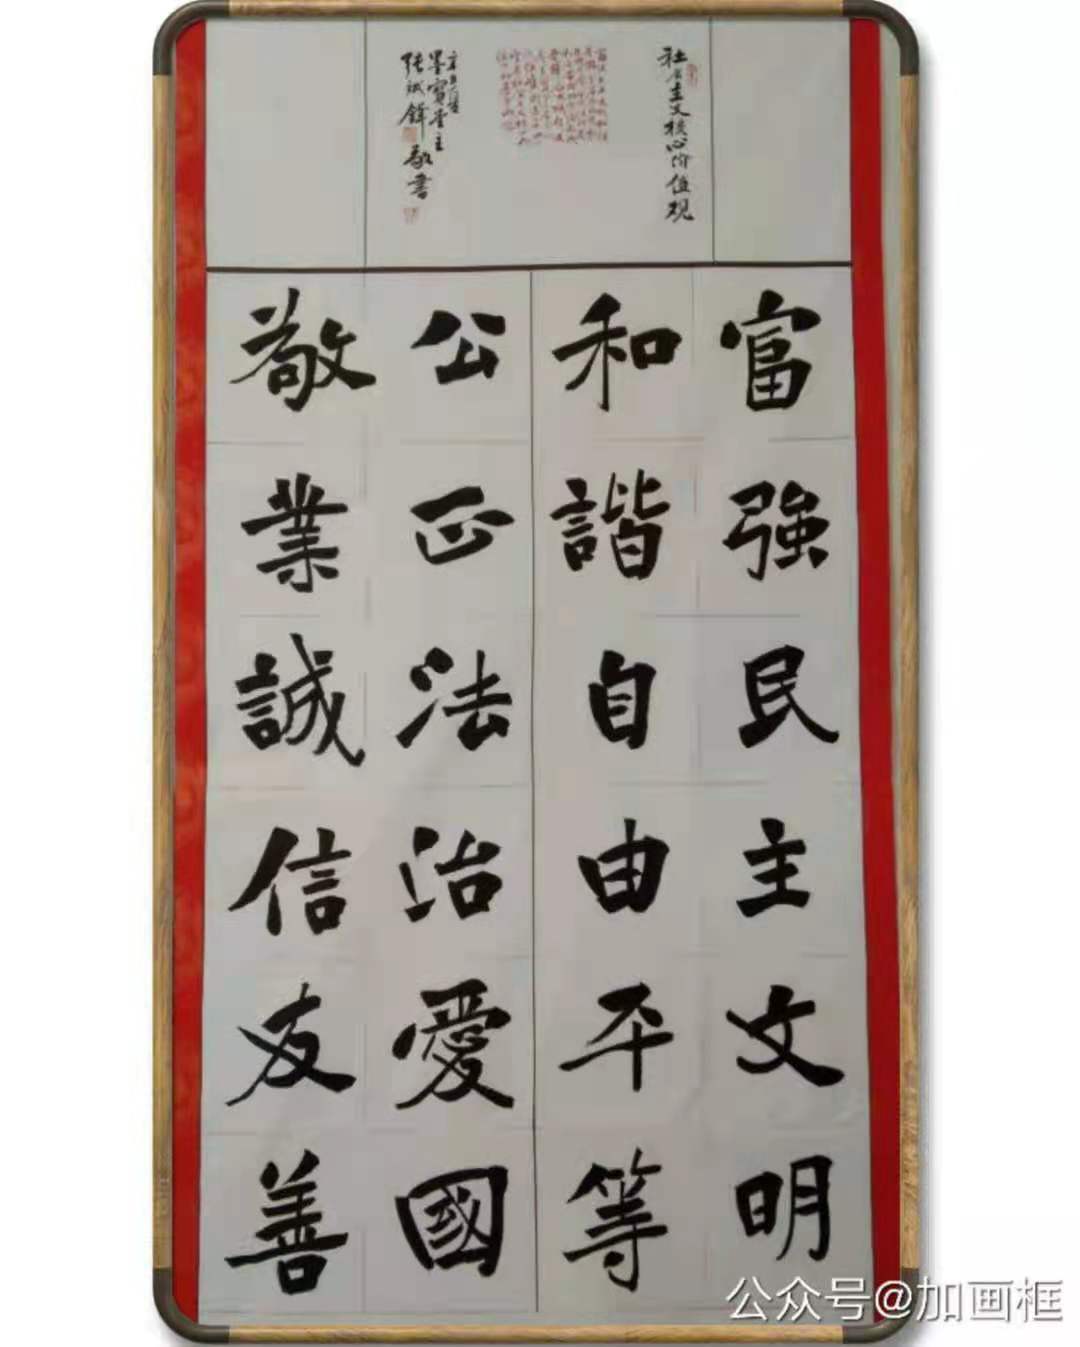 社会主义核心价值观
墨寳堂主
敬書
富強民主文明
和諧自由平等
公正法治愛國
敬業誠信友善
公众号@加画框